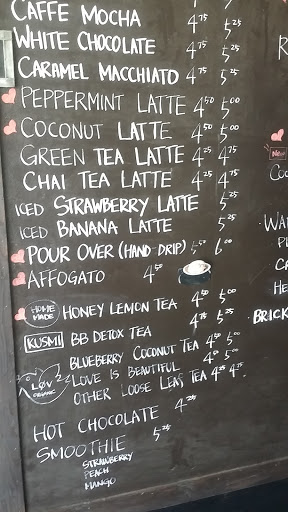 CAFFE MOCHA 4.75 5.25
WHITE CHOCOLATE 4.75 5.25
CARAMEL MACCHIATO 4.75 5.25
PEPPERMINT LATTE 4.50 5.00
COCONUT LATTE 4.50 5.00
GREEN TEA LATTE 4.25 4.75
CHAI TEA LATTE 4.25 4.75
ICED STRAWBERRY LATTE 5.25
ICED BANANA LATTE 5.25
POUR OVER (HAND DRIP) 5.50 6.00
AFFOGATO 4.50
HOME MADE HONEY LEMON TEA 4.50 5.00
KUSMI BB DETOX TEA 4.75 5.25
BLUEBERRY COCONUT TEA 4.50 5.00
LOV ORGANIC LOVE IS BEAUTIFUL 4.50 5.00
OTHER LOOSE LEAF TEA 4.25 4.75
HOT CHOCOLATE 4.25
SMOOTHIE 5.25
STRAWBERRY
PEACH
MANGO
R
New
Co
WA
P
CA
HE
BRICK